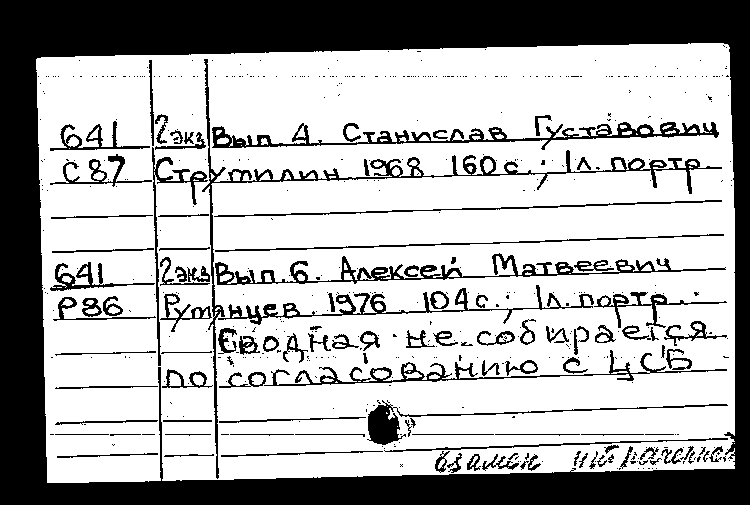 641 2экз Вып. 4. Станислав Густавович
С87 Струмилин 1968 160с.; 1л. портр.
641 2экз Вып. 6. Алексей Матвеевич
Р86 Румянцев. 1976. 104с.; 1л. портр.
Сводная не собирается
по согласованию с ЦСБ
взамен утраченной